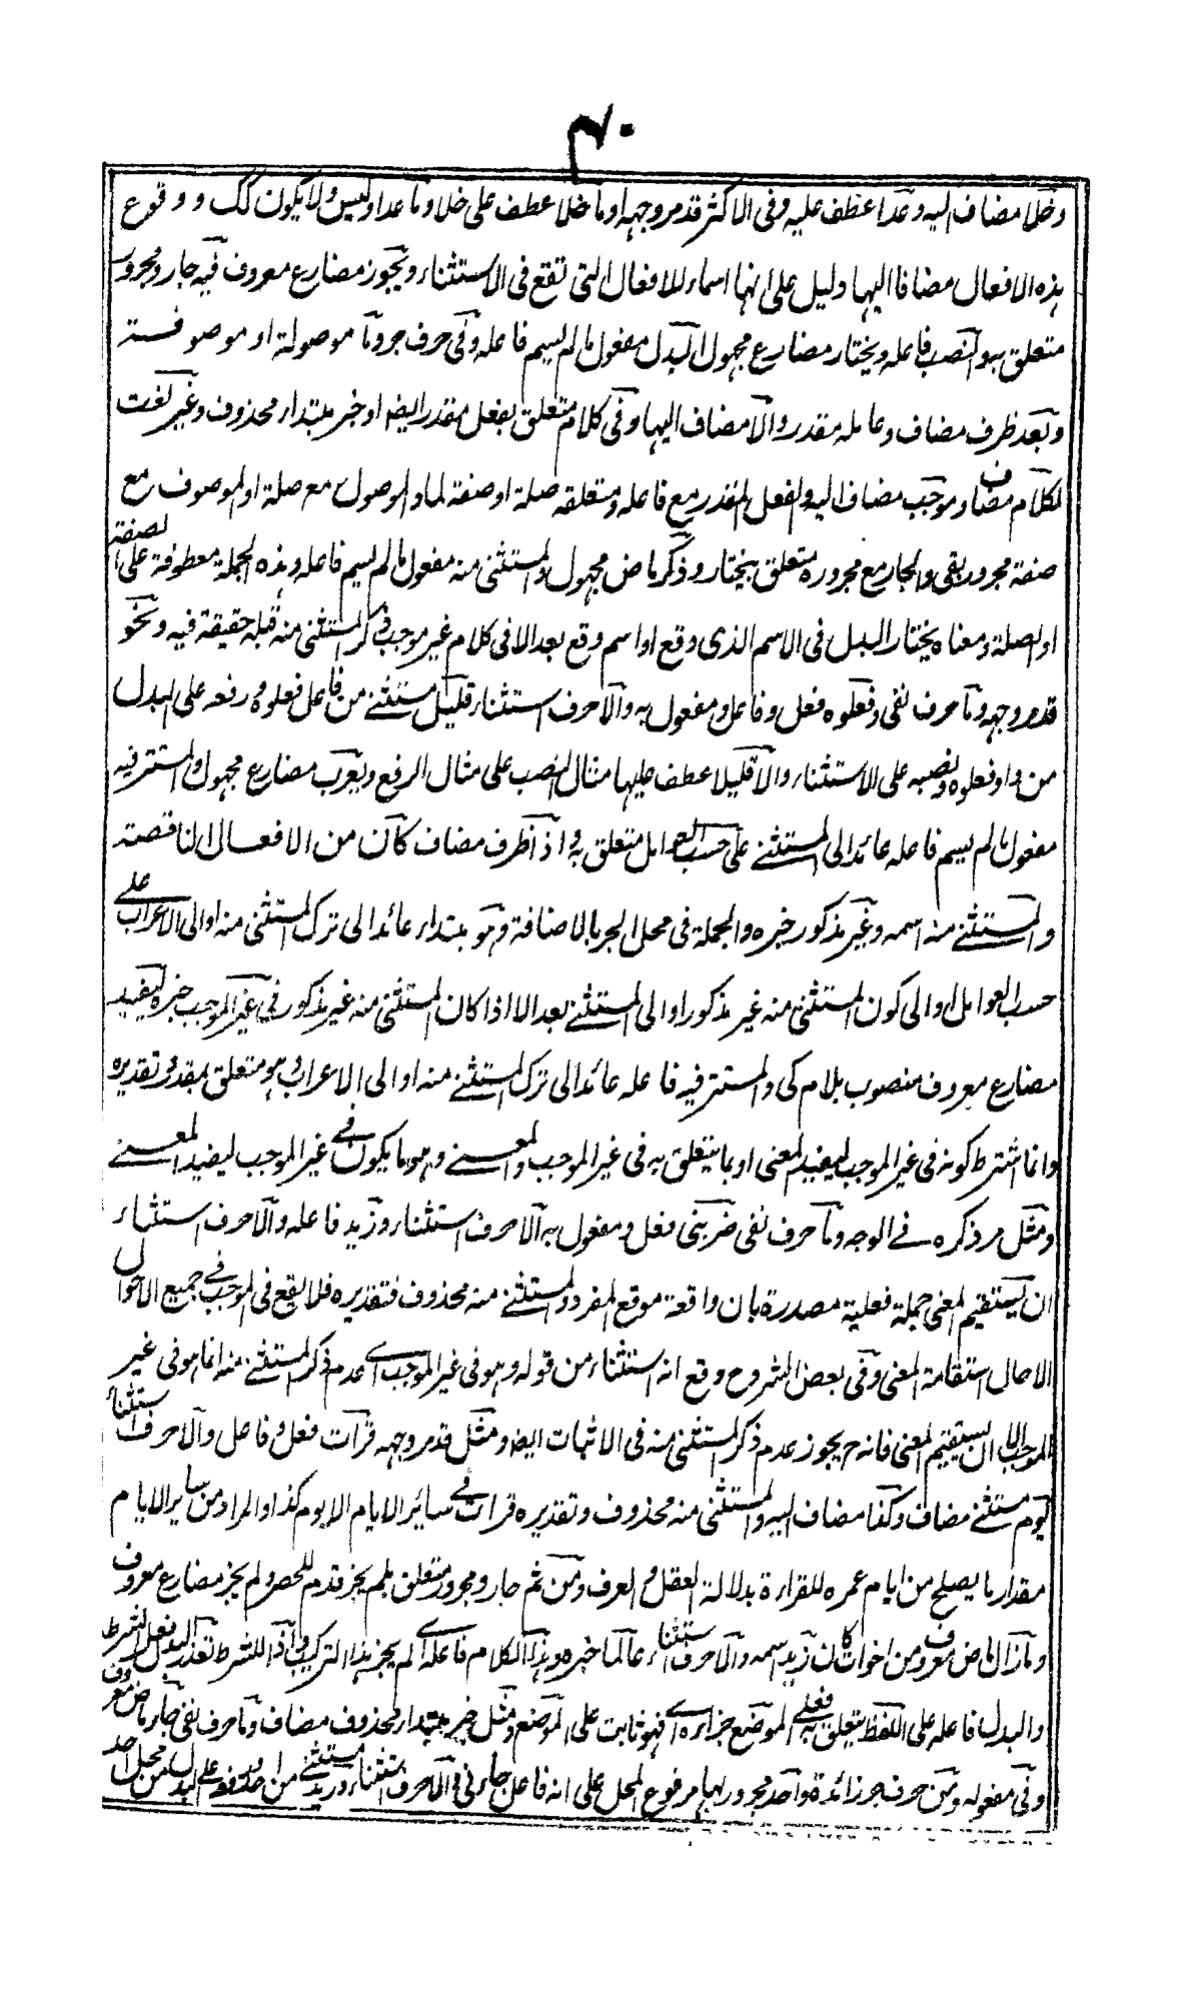 ۴۰
وخلا مضاف اليه وعدا عطف عليه وفى الاكثر قد مر وجهه او ما خلا عطف على خلا وما عدا وليس ولا يكون كك ووقوع
هذه الافعال مضافا اليها دليل على انها اسماء للافعال التى تقع فى الاستثناء ويجوز مضارع معروف فيه جار ومجرور
متعلق به والنصب فاعله ويختار مضارع مجهول البدل مفعول ما لم يسم فاعله وفى حرف جر وما موصولة او موصوفة
وبعد ظرف مضاف وعامله مقدر والا مضاف اليها وفى كلام متعلق بفعل مقدر ايضا او خبر مبتداء محذوف وغير نعت
لكلام مضاف وموجب مضاف اليه والفعل المقدر مع فاعله ومتعلقه صلة او صفة لما والموصول مع صلة او الموصوف مع
صفة مجرور بفى والجار مع مجروره متعلق بيختار وذكر ماض مجهول والمستثنى منه مفعول ما لم يسم فاعله وهذه الجملة معطوفة على الصفة
او الصلة ومعناه يختار البدل فى الاسم الذى وقع او اسم وقع بعد الا فى كلام غير موجب ذكر المستثنى منه قبله حقيقة فيه ونحو
قد مر وجهه وما حرف نفى وفعلوه فعل وفاعل ومفعول به والا حرف استثناء قليل مستثنى من فاعل فعلوه ورفعه على البدل
من واو فعلوه ونصبه على الاستثناء والا قليلا عطف عليها مثال النصب على مثال الرفع ويعرب مضارع مجهول والمستتر فيه
مفعول ما لم يسم فاعله عائد الى المستثنى على حسب العوامل متعلق به واذا ظرف مضاف كان من الافعال الناقصة
والمستثنى منه اسمه وغير مذكور خبره والجملة فى محل الجر بالاضافة وهو مبتداء عائد الى ترك المستثنى منه او الى الاعراب على
حسب العوامل والى كون المستثنى منه غير مذكور او الى المستثنى بعد الا اذا كان المستثنى منه غير مذكور فى غير الموجب خبره ليفيد
مضارع معروف منصوب بلام كى والمستتر فيه فاعله عائد الى ترك المستثنى منه او الى الاعراب وهو متعلق بمقدر وتقديره
وانما اشترط كونه فى غير الموجب ليفيد المعنى او بما يتعلق به فى غير الموجب والمعنى وهو ما يكون فى غير الموجب ليفيد المعنى
ومثل مر ذكره فى الوجه وما حرف نفى ضربنى فعل ومفعول به الا حرف استثناء وزيد فاعله والا حرف استثناء
ان يستقيم المعنى جملة فعلية مصدرة بان واقعة موقع المفرد والمستثنى منه محذوف فتقديره فلا يقع فى الموجب فى جميع الاحوال
الا حال استقامة المعنى وفى بعض الشروح وقع انه استثناء من قوله وهو فى غير الموجب اى عدم ذكر المستثنى منه انما هو فى غير
الموجب الا ان يستقيم المعنى فانه ح يجوز عدم ذكر المستثنى منه فى الاثبات ايضا ومثل قد مر وجهه قرأت فعل وفاعل والا حرف استثناء
يوم مستثنى مضاف وكذا مضاف اليه والمستثنى منه محذوف وتقديره قرات فى سائر الايام الا يوم كذا والمراد من سائر الايام
مقدار ما يصلح من ايام عمره للقراءة بدلالة العقل والعرف ومن ثم جار ومجرور متعلق بلم يجز قدم للحصر ولم يجز مضارع معروف
وما زال ماض معروف من اخوات كان زيد اسمه والا حرف استثناء عالما خبره وهذا الكلام فاعله اى لم يجز هذا التركيب واذا للشرط تعذر البدل فعل الشرط
والبدل فاعله على اللفظ يتعلق به فعلى الموضع جزاءه اى فهو ثابت على الموضع ومثل خبر مبتداء محذوف مضاف وما حرف نفى جاء ماض معروف
ونى مفعوله ومن حرف جر زائدة واحد مجرور بها مرفوع المحل على انه فاعل جاءنى والا حرف استثناء وزيد مستثنى من احد ورفعه على البدل من محل احد